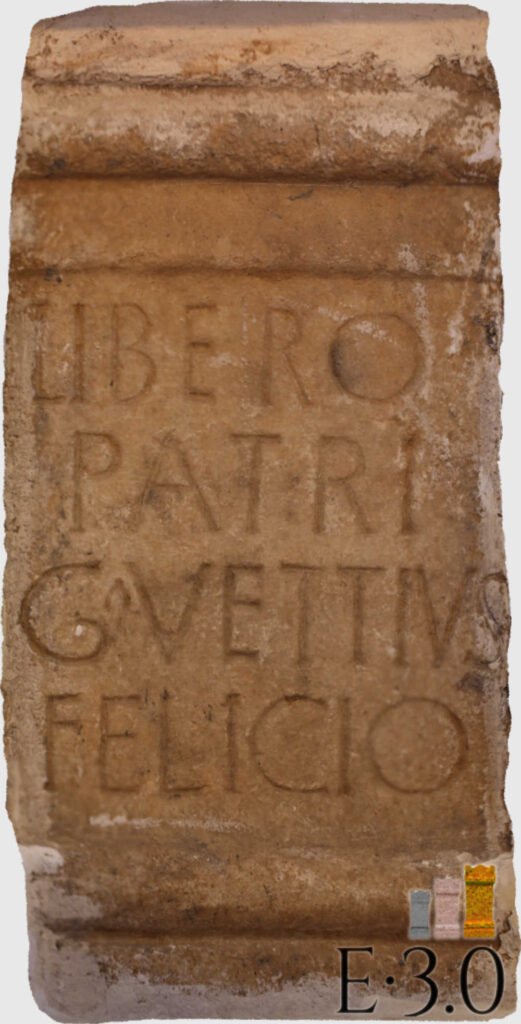 LIBERO
PATRI
G VETTIVS
FELICIO
E·3.0